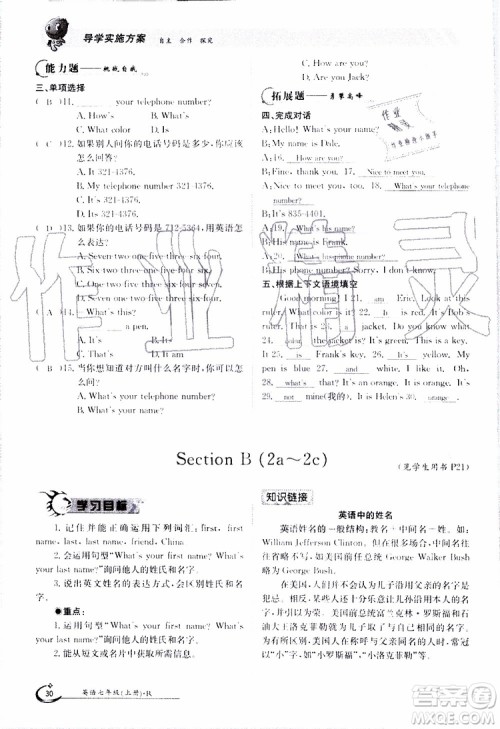 导学实施方案 自主 合作 探究
能力题——挑战自我
三、单项选择
( B )11. ____ your telephone number?
A. How's B. What's
C. What color D. Is
( C )12. 如果别人问你的电话号码是多少,你应该怎么回答?
A. Is 321-4376.
B. My telephone number 321-4376.
C. It's 321-4376.
( A )13. 如果你的电话号码是 712-5364,用英语怎么表达?
A. Seven one two five three six four.
B. Seven two one five three six four.
C. Seven one two five three four six.
( A )14. —
— a pen.
A. It's B. This C. Is D. That
( B )15. 当你想知道对方叫什么名字时,你应该怎么问?
A. What's your telephone number?
B. What's your name?
C. How are you?
D. Is he Jeff?
拓展题——勇攀高峰
四、完成对话
A: Hello! What's your name?
B: My name is Dale.
A: 16. How are you?
B: I'm fine, thanks. 17. Nice to meet you.
A: Nice to meet you, too. 18. What's your telephone number?
B: It's 835-4401.
A: 19. What's his name?
B: His name is Frank.
A: 20. What's his phone number?
B: His phone number is
五、根据上下文语境填空
Good morning! I 21. am Eric. Look at this ruler. What 22. color is the ruler? It's yellow. 23. Is the jacket is Frank's? Yes, it 24. is. It's Frank's key. My pen is orange. And 28. what's that? It's an orange, 29. and what color is it? It is orange. The orange is 30. not mine(我的). It is Helen's.
Section B (2a～2c)
(见学生用书 P21)
学习目标
1. 记住并能正确运用下列词汇:first, first name, last, last name, friend, China
2. 会运用句型“What's your/his/her first/last name?”询问他人的姓氏和名字。
3. 说出英文姓名的表达形式,会区别姓氏和名字。
●重点:
1. 运用句型“What's your/his/her first/last name?”询问他人的姓氏和名字。
2. 了解如何正确运用姓氏和名字。
知识链接
英语中的姓名
英语姓名的一般结构:教名+中间名+姓。如:William Jefferson Clinton。但在很多场合中间名往往省略不写,如 George Walker Bush 写成 George Bush。
在美国,人们喜欢给儿子沿用父亲的名字,有些人还十分乐意让儿孙沿用自己或家族的名字。例如,美国总统富兰克林·罗斯福和石油大王洛克菲勒就与父亲同名,所以常在名字前冠以“小”字,如“小罗斯福”“小洛克菲勒”等。
30 英语七年级(上册)·R